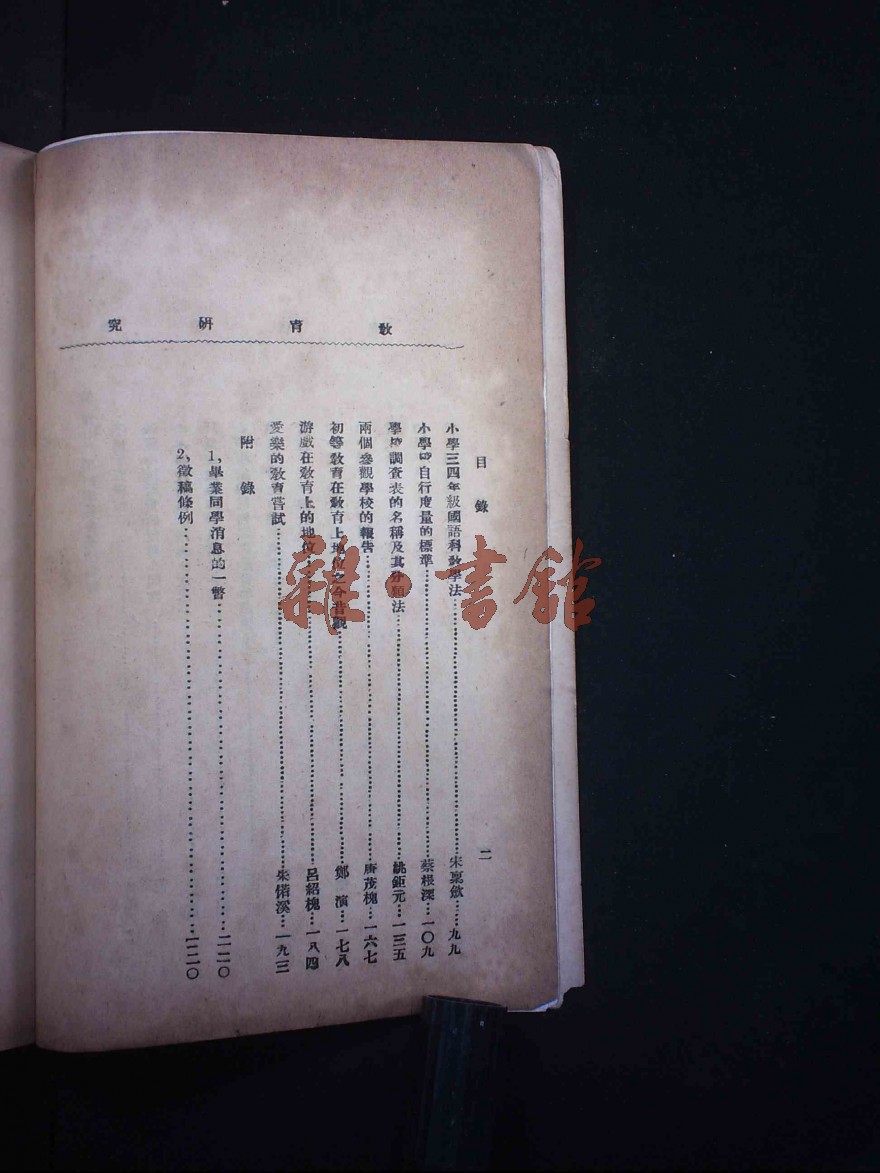 教育研究
目錄
二
小學三四年級國語科教學法……宋稟歛……九九
小學 自行度量的標準……蔡根深……一〇九
學 調查表的名稱及其分類法……姚鉅元……一三五
兩個參觀學校的報告……唐茂槐……一六七
初等教育在教育上地位之今昔觀……鄭演……一七八
游戲在教育上的地位……呂紹槐……一八四
愛樂的教育嘗試……朱偌溪……一九三
附錄
1、畢業同學消息的一瞥……二二〇
2、徵稿條例……二二〇
雜·書館